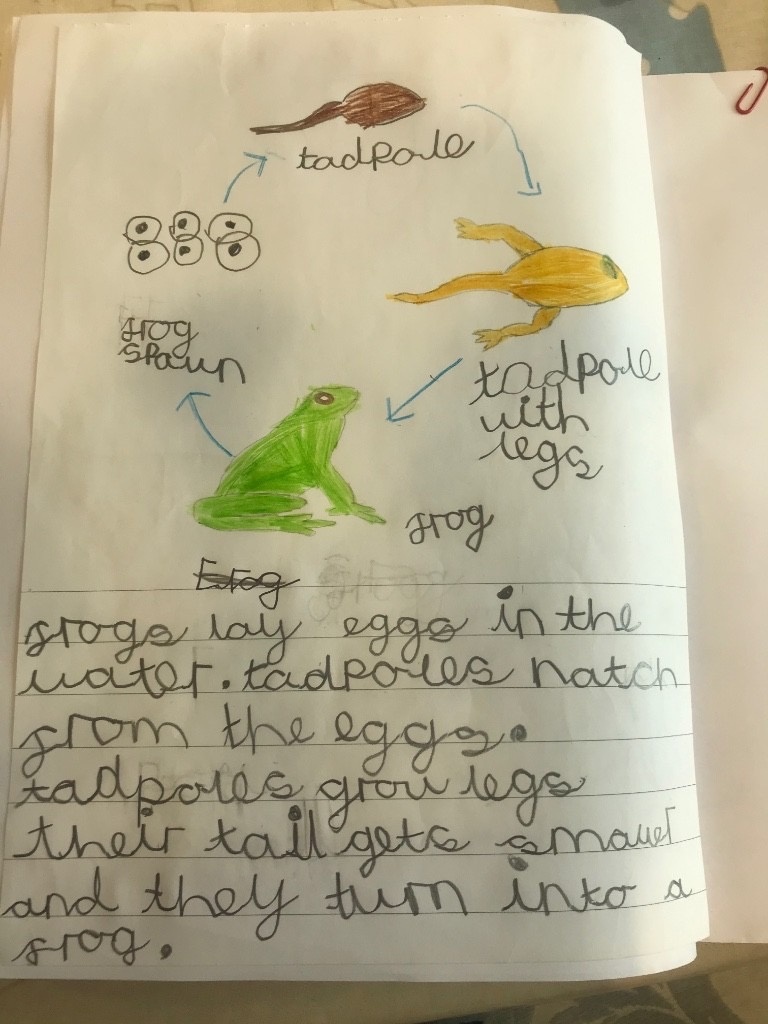 tadpole
frog
spawn
tadpole
with
legs
frog
Frog
frogs lay eggs in the
water. tadpoles hatch
from the eggs.
tadpoles grow legs
their tail gets smaller
and they turn into a
frog.